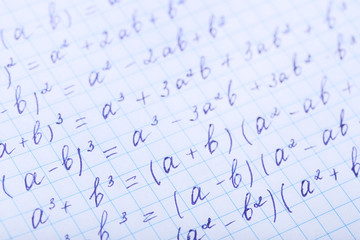 (a - b) =
)² = a² + 2ab + b²
- b)² = a² - 2ab + b²
a + b)³ = a³ + 3a²b + 3ab² + b
(a - b)³ = a³ - 3a²b + 3ab² - b
a³ + b³ = (a + b)(a² - ab +
b³ = (a - b)(a² - ab
(a² - b²)(a² +